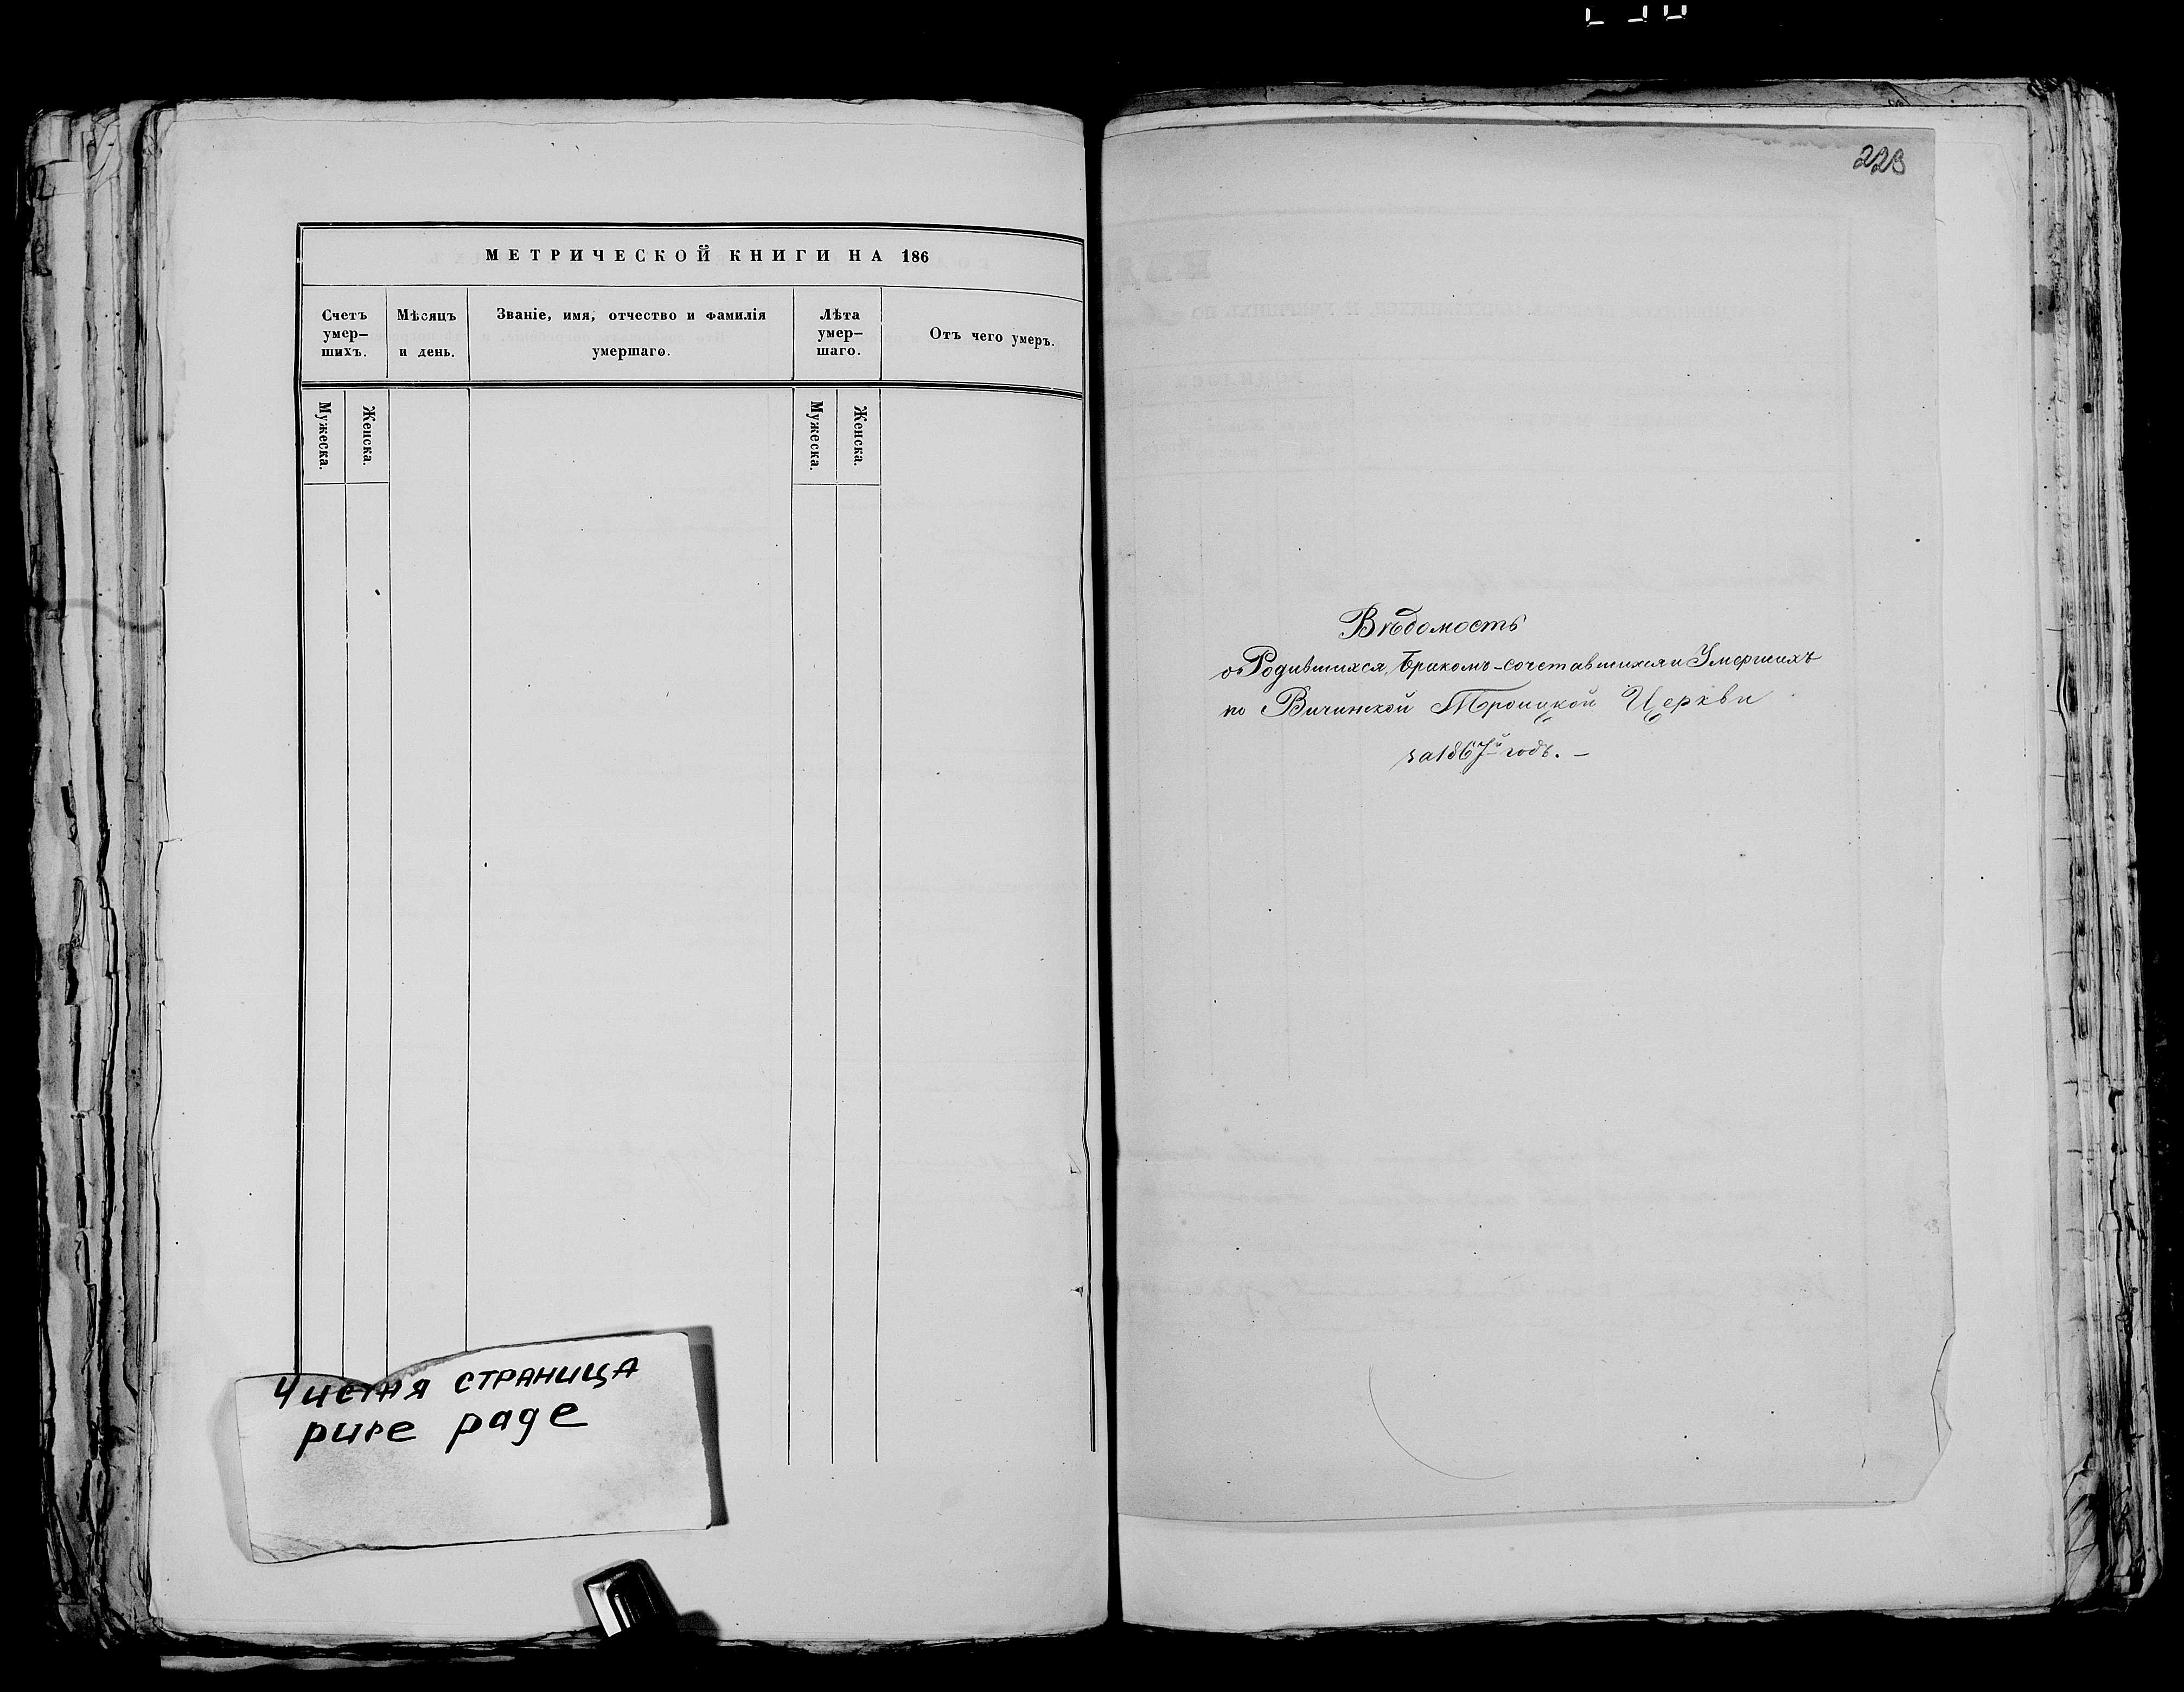 МЕТРИЧЕСКОЙ КНИГИ НА 186
Счетъ умер-шихъ.
Мѣсяцъ и день.
Званіе, имя, отчество и фамилія умершаго.
Лѣта умер-шаго.
Отъ чего умеръ.
Мужеска.
Женска.
Мужеска.
Женска.
Чистая страница
pure page
223
Вѣдомость
о Родившихся, Бракомъ-сочетавшихся и Умершихъ
по Вичинской Троицкой Церкви
за 1867й годъ. –